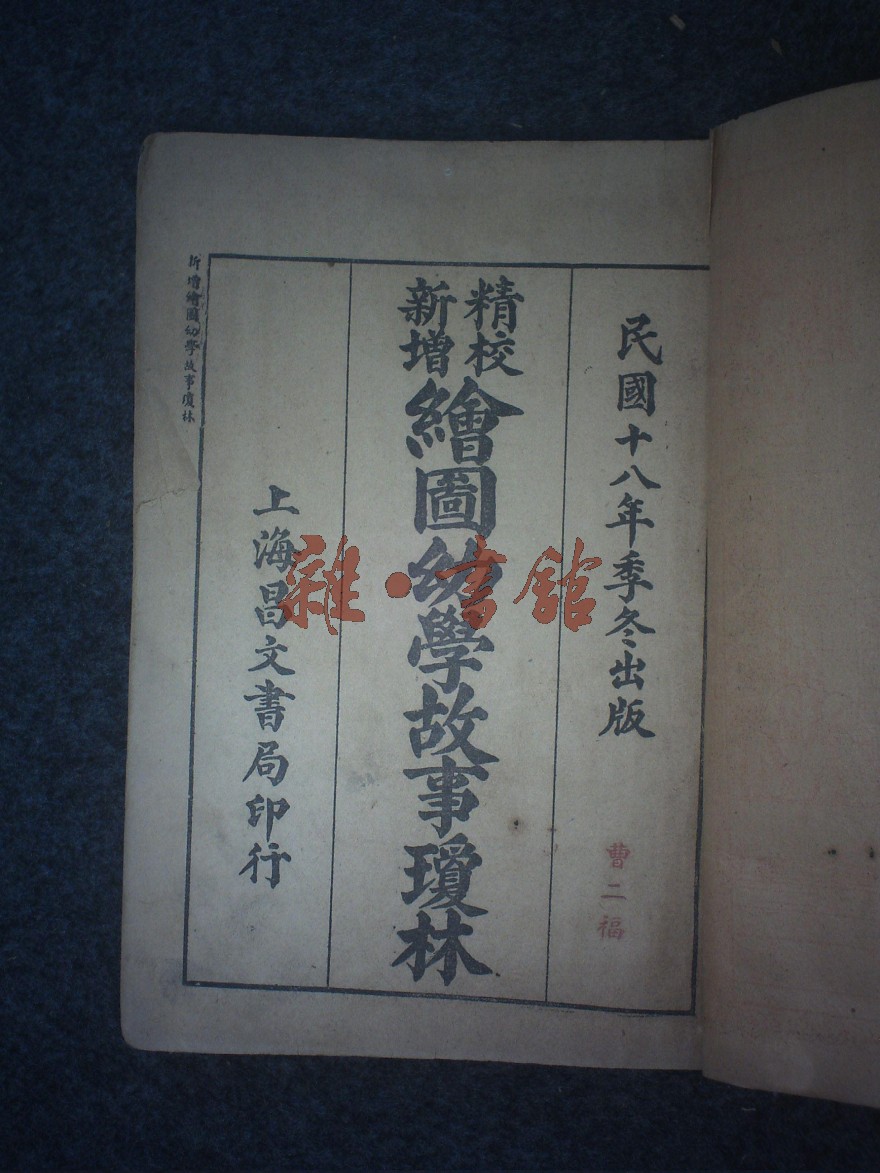 民國十八年季冬出版
曹二福
精校
新增
繪圖幼學故事瓊林
上海昌文書局印行
新增繪圖幼學故事瓊林
雜·書館